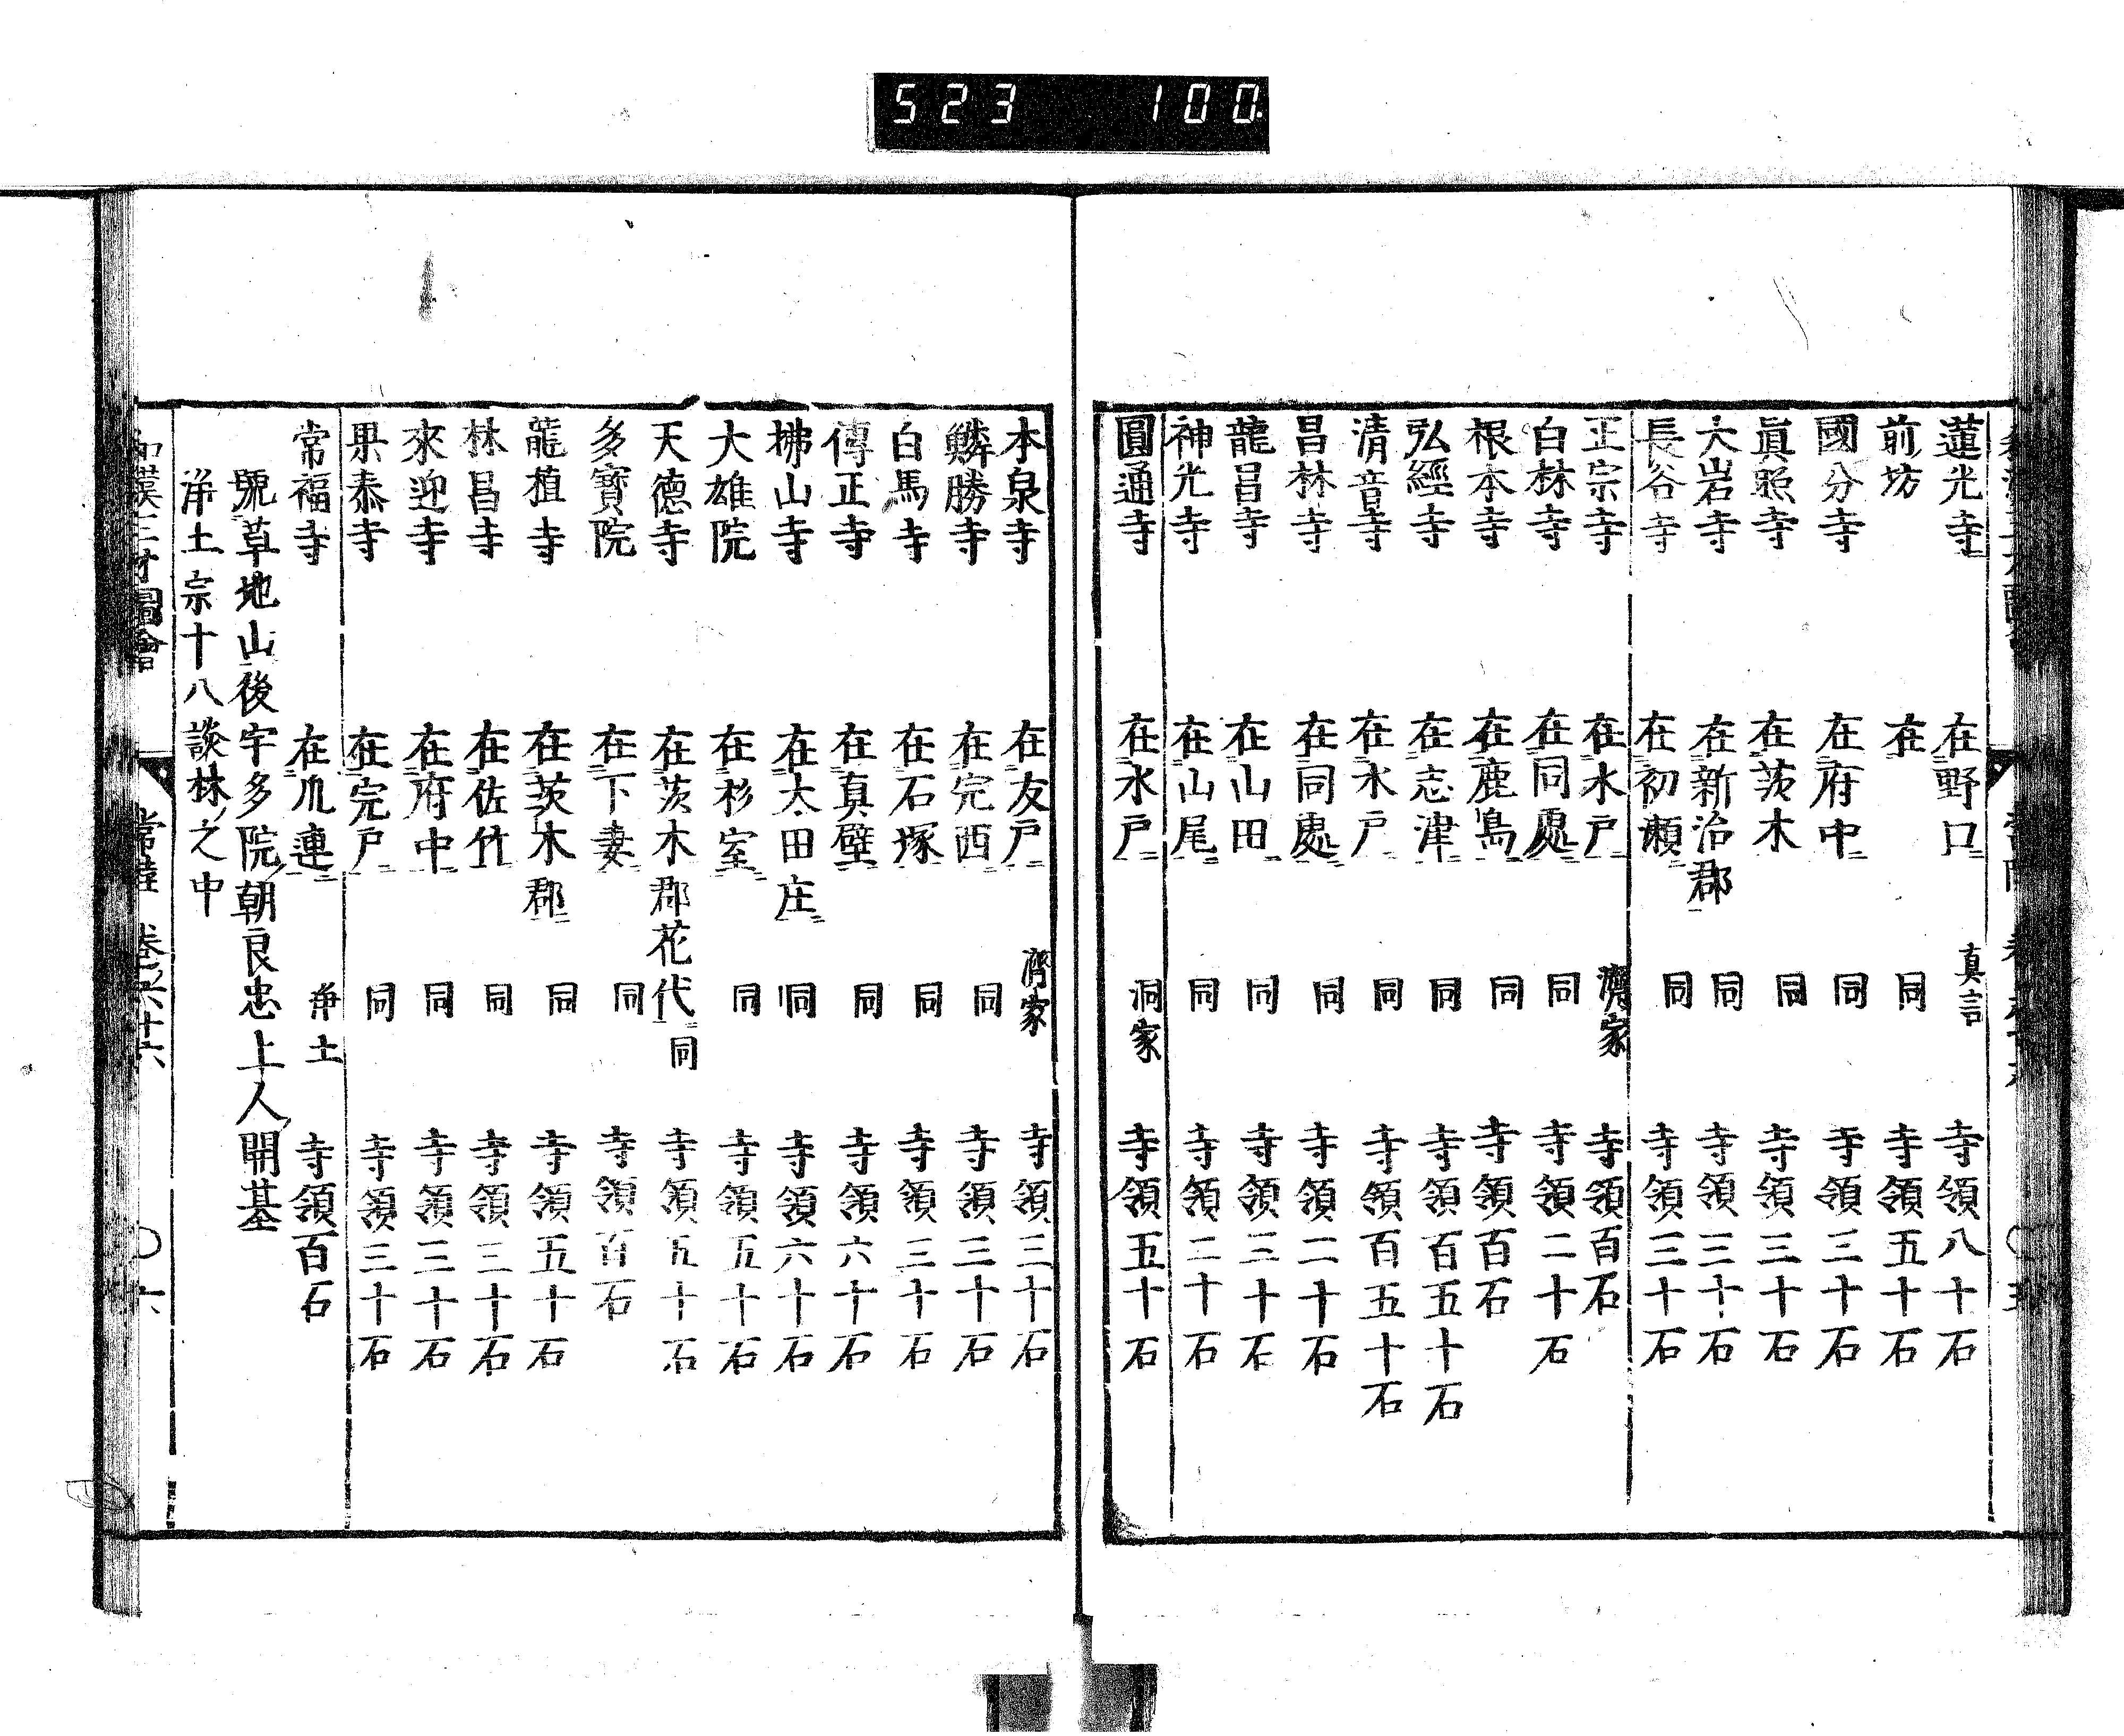 523 100
蓮光寺 在野口 真言 寺領八十石
前坊 在 同 寺領五十石
國分寺 在府中 同 寺領三十石
眞照寺 在茨木 同 寺領三十石
大岩寺 在新治郡 同 寺領三十石
長谷寺 在初瀬 同 寺領三十石
正宗寺 在水戸 濟家 寺領百石
白林寺 在同處 同 寺領二十石
根本寺 在鹿島 同 寺領百石
弘經寺 在志津 同 寺領百五十石
清音寺 在水戸 同 寺領百五十石
昌林寺 在同處 同 寺領二十石
龍昌寺 在山田 同 寺領三十石
神光寺 在山尾 同 寺領二十石
圓通寺 在水戸 洞家 寺領五十石
本泉寺 在友戸 濟家 寺領三十石
鱗勝寺 在完西 同 寺領三十石
白馬寺 在石塚 同 寺領三十石
傳正寺 在真壁 同 寺領六十石
拂山寺 在太田庄 同 寺領六十石
大雄院 在杉室 同 寺領五十石
天德寺 在茨木郡花代 同 寺領五十石
多寶院 在下妻 同 寺領百石
龍植寺 在茨木郡 同 寺領五十石
林昌寺 在佐竹 同 寺領三十石
來迎寺 在府中 同 寺領三十石
果泰寺 在完戸 同 寺領三十石
常福寺 在爪連 浄土 寺領百石
號草地山後宇多院朝良忠上人開基
浄土宗十八談林之中
和漢三才圖會 常陸 卷之六十六 〇六